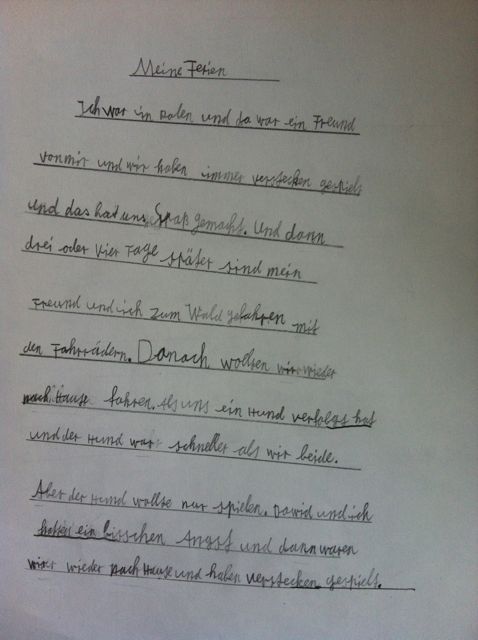 Meine Ferien
Ich war in Polen und da war ein Freund
von mir und wir haben immer verstecken gespielt
und das hat uns Spaß gemacht. Und dann
drei oder vier Tage später sind mein
Freund und ich zum Wald gefahren mit
den Fahrrädern. Danach wollten wir wieder
nach Hause fahren. Als uns ein Hund verfolgt hat
und der Hund war schneller als wir beide.
Aber der Hund wollte nur spielen. Dawid und ich
hatten ein bisschen Angst und dann waren
wir wieder nach Hause und haben verstecken gespielt.